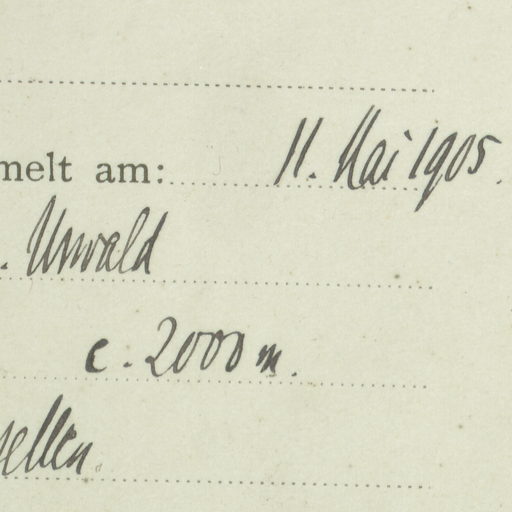 melt am: 11. Mai 1905.
. Urwald
c. 2000 m.
ellen